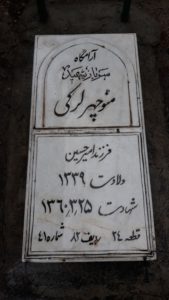 آرامگاه
سرباز شهید
منوچهر لرکی
فرزند امیرحسین
ولادت ۱۳۳۹
شهادت ۱۳۶۰/۳/۲۵
قطعه ۲۴ ردیف ۸۲ شماره ۴۱